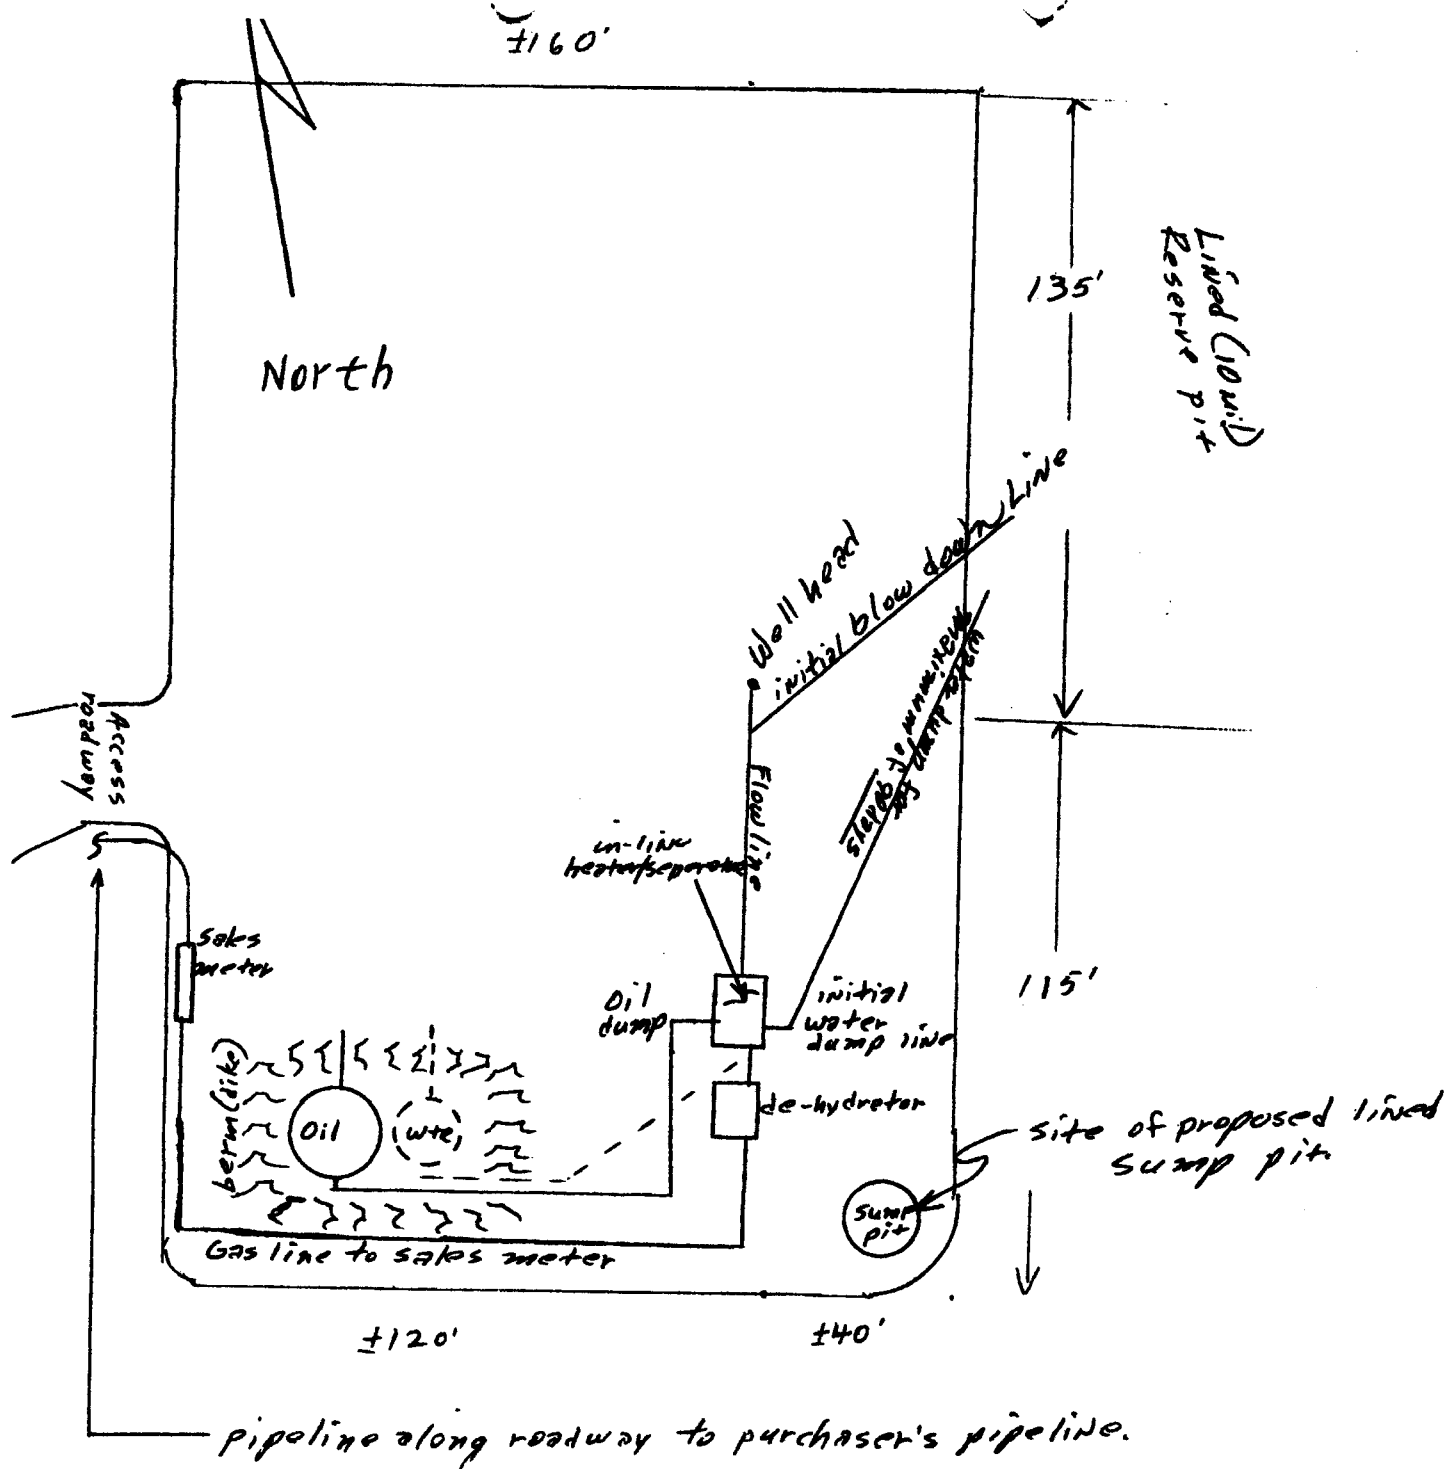 ±160'
135'
Lined (10 mil)
Reserve pit
North
Well head
initial blow down Line
water dump for
maximum of 90 days
Access
roadway
Flow line
in-line
heater/seperator
sales
meter
Oil
dump
initial
water
dump line
115'
berm (dike)
Oil
wtr
de-hydrator
site of proposed lined
sump pit.
sump
pit
Gas line to sales meter
±120'
±40'
pipeline along roadway to purchaser's pipeline.